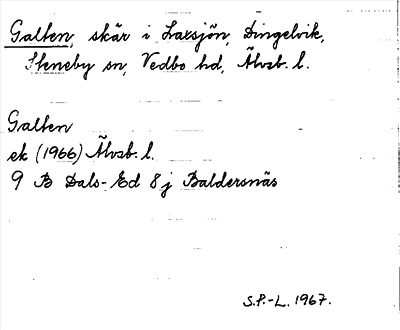 Galten, skär i Laxsjön, Dingelvik,
Steneby sn, Vedbo hd, Älvsb. l.
Galten
ek (1966) Älvsb. l.
9 B Dals-Ed 8 j Baldersnäs
S.P.-L. 1967.